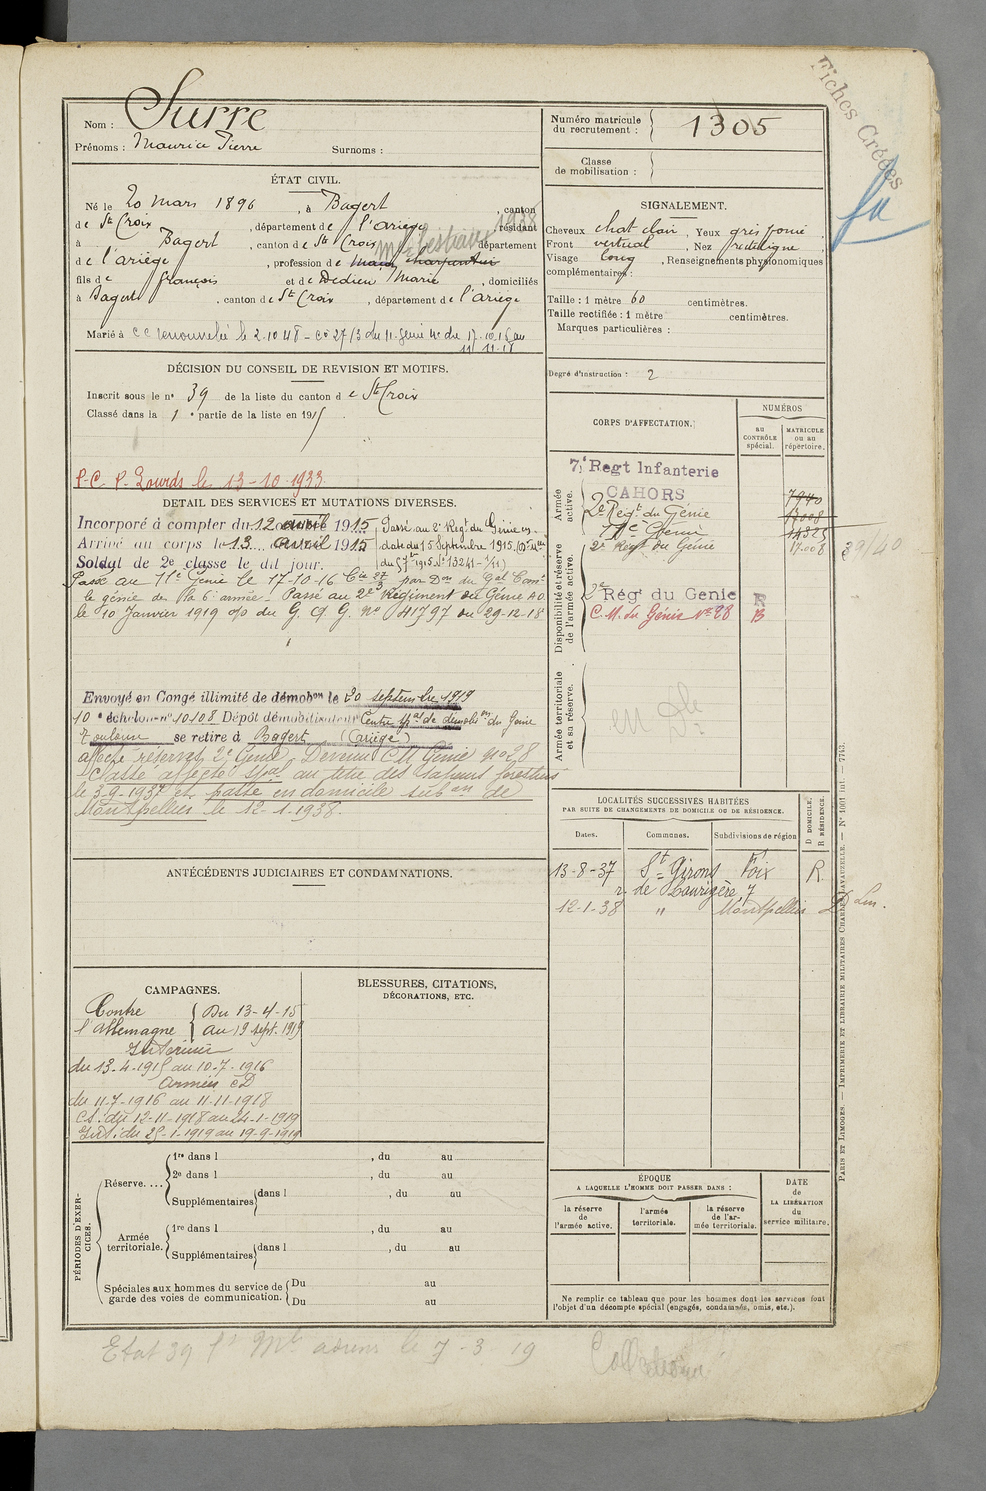 Fiches Créées
Nom : Surre
Prénoms : Maurice Pierre Surnoms :
Numéro matricule du recrutement : 1305
Classe de mobilisation :
ÉTAT CIVIL.
Né le 20 mars 1896, à Bagert, canton
de St Croix, département de l'ariège, résidant
à Bagert, canton de St Croix, département
de l'ariège, profession de charpentier
fils de françois et de Dedieu Marie, domiciliés
à Bagert, canton de St Croix, département de l'ariège
Marié à CC renouvelée le 2.10 48 - Cie 27/3 du 11 Génie 4e du 17.10.16 au
11-11-18
SIGNALEMENT.
Cheveux chat clair, Yeux gris foncé
Front vertical, Nez rectiligne,
Visage long, Renseignements physionomiques
complémentaires :
Taille : 1 mètre 60 centimètres.
Taille rectifiée : 1 mètre centimètres.
Marques particulières :
Degré d'instruction : 2
DÉCISION DU CONSEIL DE REVISION ET MOTIFS.
Inscrit sous le n° 39 de la liste du canton de St Croix
Classé dans la 1e partie de la liste en 1915
P.C. P. Lourds le 13-10-1933
DETAIL DES SERVICES ET MUTATIONS DIVERSES.
Incorporé à compter du 12 avril 1915
Arrivé au corps le 13 avril 1915
Soldat de 2e classe le dit jour.
Passé au 2e Regt du Génie en
date du 15 Septembre 1915.
Passé au 11e Génie le 17-10-16 Cie 27/3 par Don du Gal Comt
le génie de la 6e armée. Passé au 2e Régiment du Génie AD
le 10 Janvier 1919 o/o du G.Q.G. No 41797 du 29-12-18
Envoyé en Congé illimité de démobon le 20 septembre 1919
10e échelon n° 10108 Dépôt démobilisateur Centre pal de démobon du Génie
Toulouse se retire à Bagert (Ariège)
affecté réserves 2e Génie. Devenu CM Génie no 28
Classé affecté spal au titre des Sapeurs forestiers
le 3-9-1937 et passé en domicile subon de
Montpellier le 12-1-1938.
CORPS D'AFFECTATION.
NUMÉROS
AU CONTRÔLE spécial.
MATRICULE ou au répertoire.
Armée active.
7e Regt Infanterie
CAHORS
2e Regt du Génie
11e Génie
2e Regt du Génie
7940
17008
14325
17.008
39/40
Disponibilité et réserve de l'armée active.
2e Régt du Genie R
C.M. du Génie No 28 B
Armée territoriale et sa réserve.
en Dle
ANTÉCÉDENTS JUDICIAIRES ET CONDAMNATIONS.
LOCALITÉS SUCCESSIVES HABITÉES
PAR SUITE DE CHANGEMENTS DE DOMICILE OU DE RÉSIDENCE.
Dates. Communes. Subdivisions de région D DOMICILE. R RÉSIDENCE.
13-8-37 St Girons Foix R.
r. de 7
12-1-38 " Montpellier D
CAMPAGNES.
Contre l'Allemagne { Du 13-4-15
au 19 sept. 1919
Intérieur
du 13-4-1915 au 10-7-1916
Armées CD
du 11-7-1916 au 11-11-1918
CS : du 12-11-1918 au 24-1-1919
Int : du 25-1-1919 au 19-9-1919
BLESSURES, CITATIONS,
DÉCORATIONS, ETC.
PÉRIODES D'EXERCICES.
Réserve....
1re dans l , du au
2e dans l , du au
Supplémentaires dans l , du au
Armée territoriale.
1re dans l , du au
Supplémentaires dans l , du au
Spéciales aux hommes du service de
garde des voies de communication.
Du au
Du au
ÉPOQUE
A LAQUELLE L'HOMME DOIT PASSER DANS :
la réserve de l'armée active.
l'armée territoriale.
la réserve de l'armée territoriale.
DATE de LA LIBÉRATION du service militaire.
Ne remplir ce tableau que pour les hommes dont les services font
l'objet d'un décompte spécial (engagés, condamnés, omis, etc.).
PARIS ET LIMOGES. — IMPRIMERIE ET LIBRAIRIE MILITAIRES CHARLES-LAVAUZELLE. — N° 1001 int. — 7743.
Etat 39 le 7-3 19